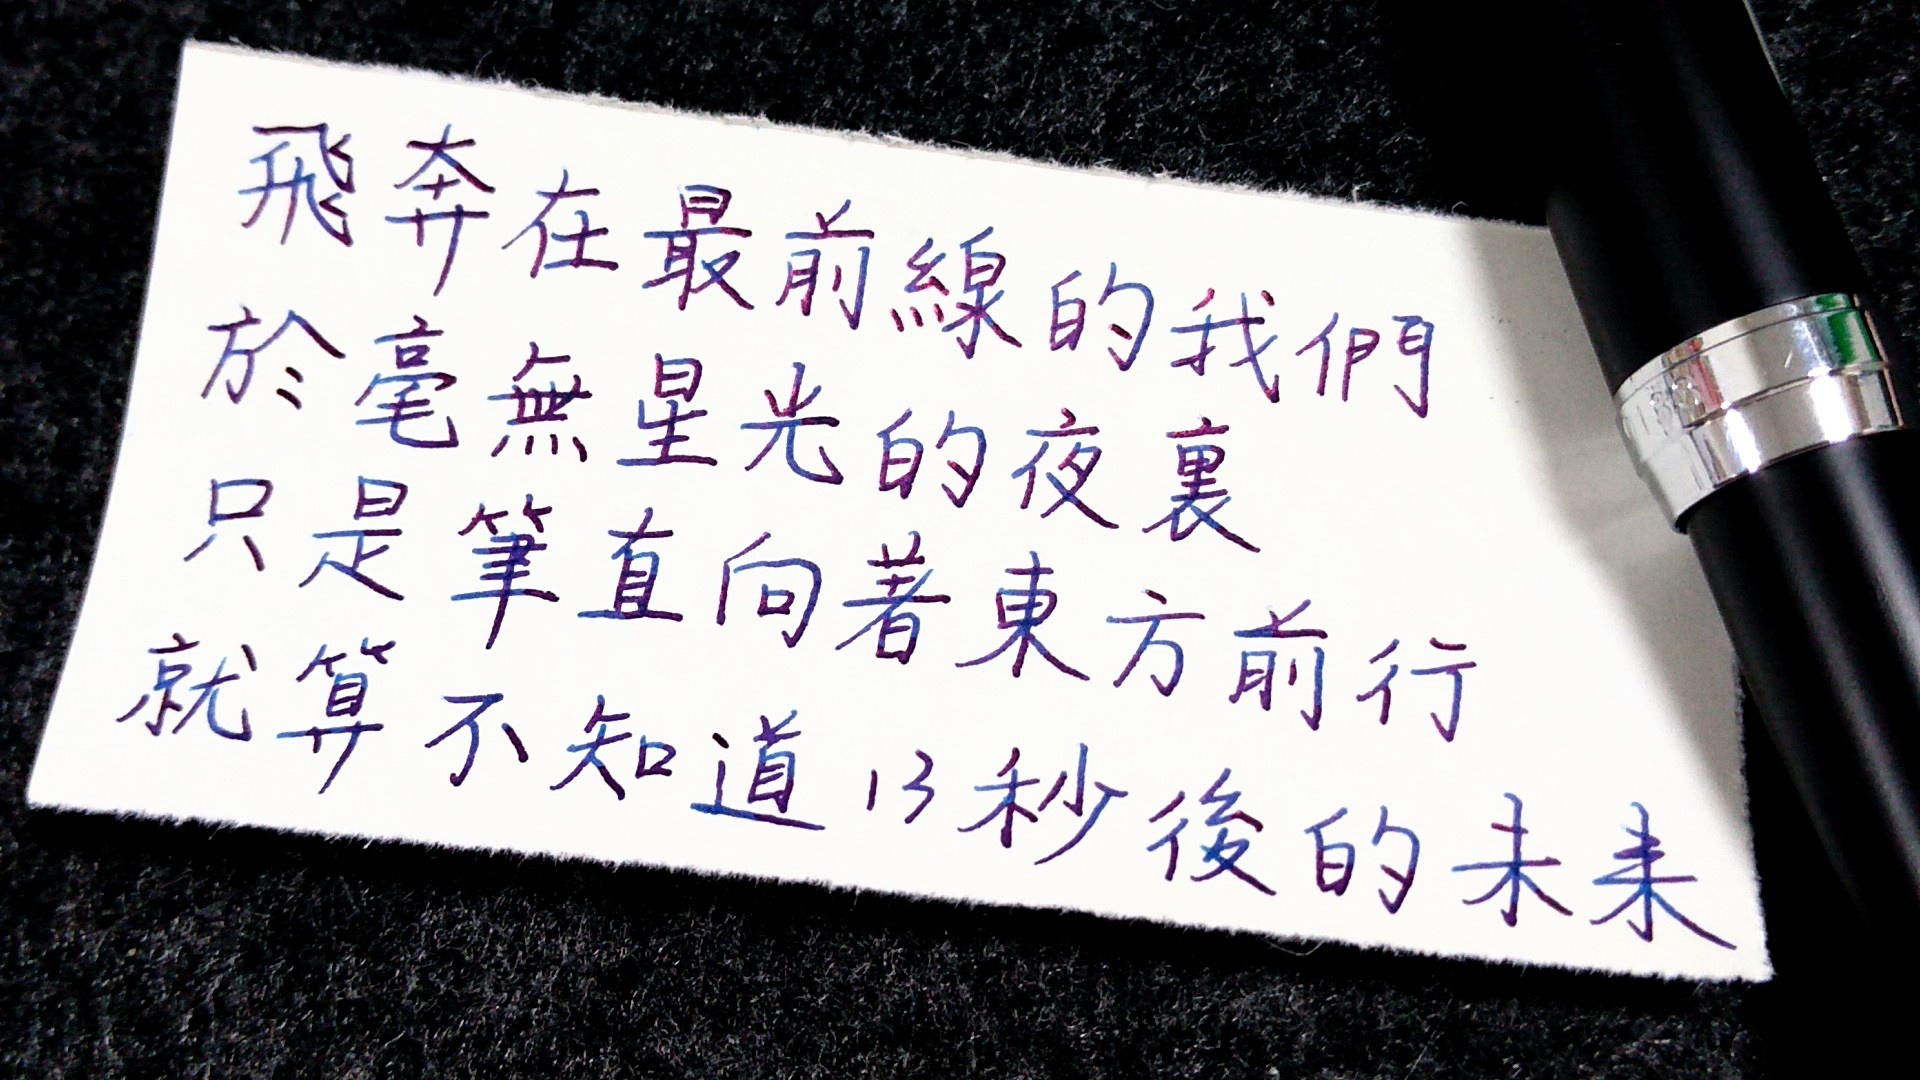 飛奔在最前線的我們
於毫無星光的夜裏
只是筆直向著東方前行
就算不知道13秒後的未来